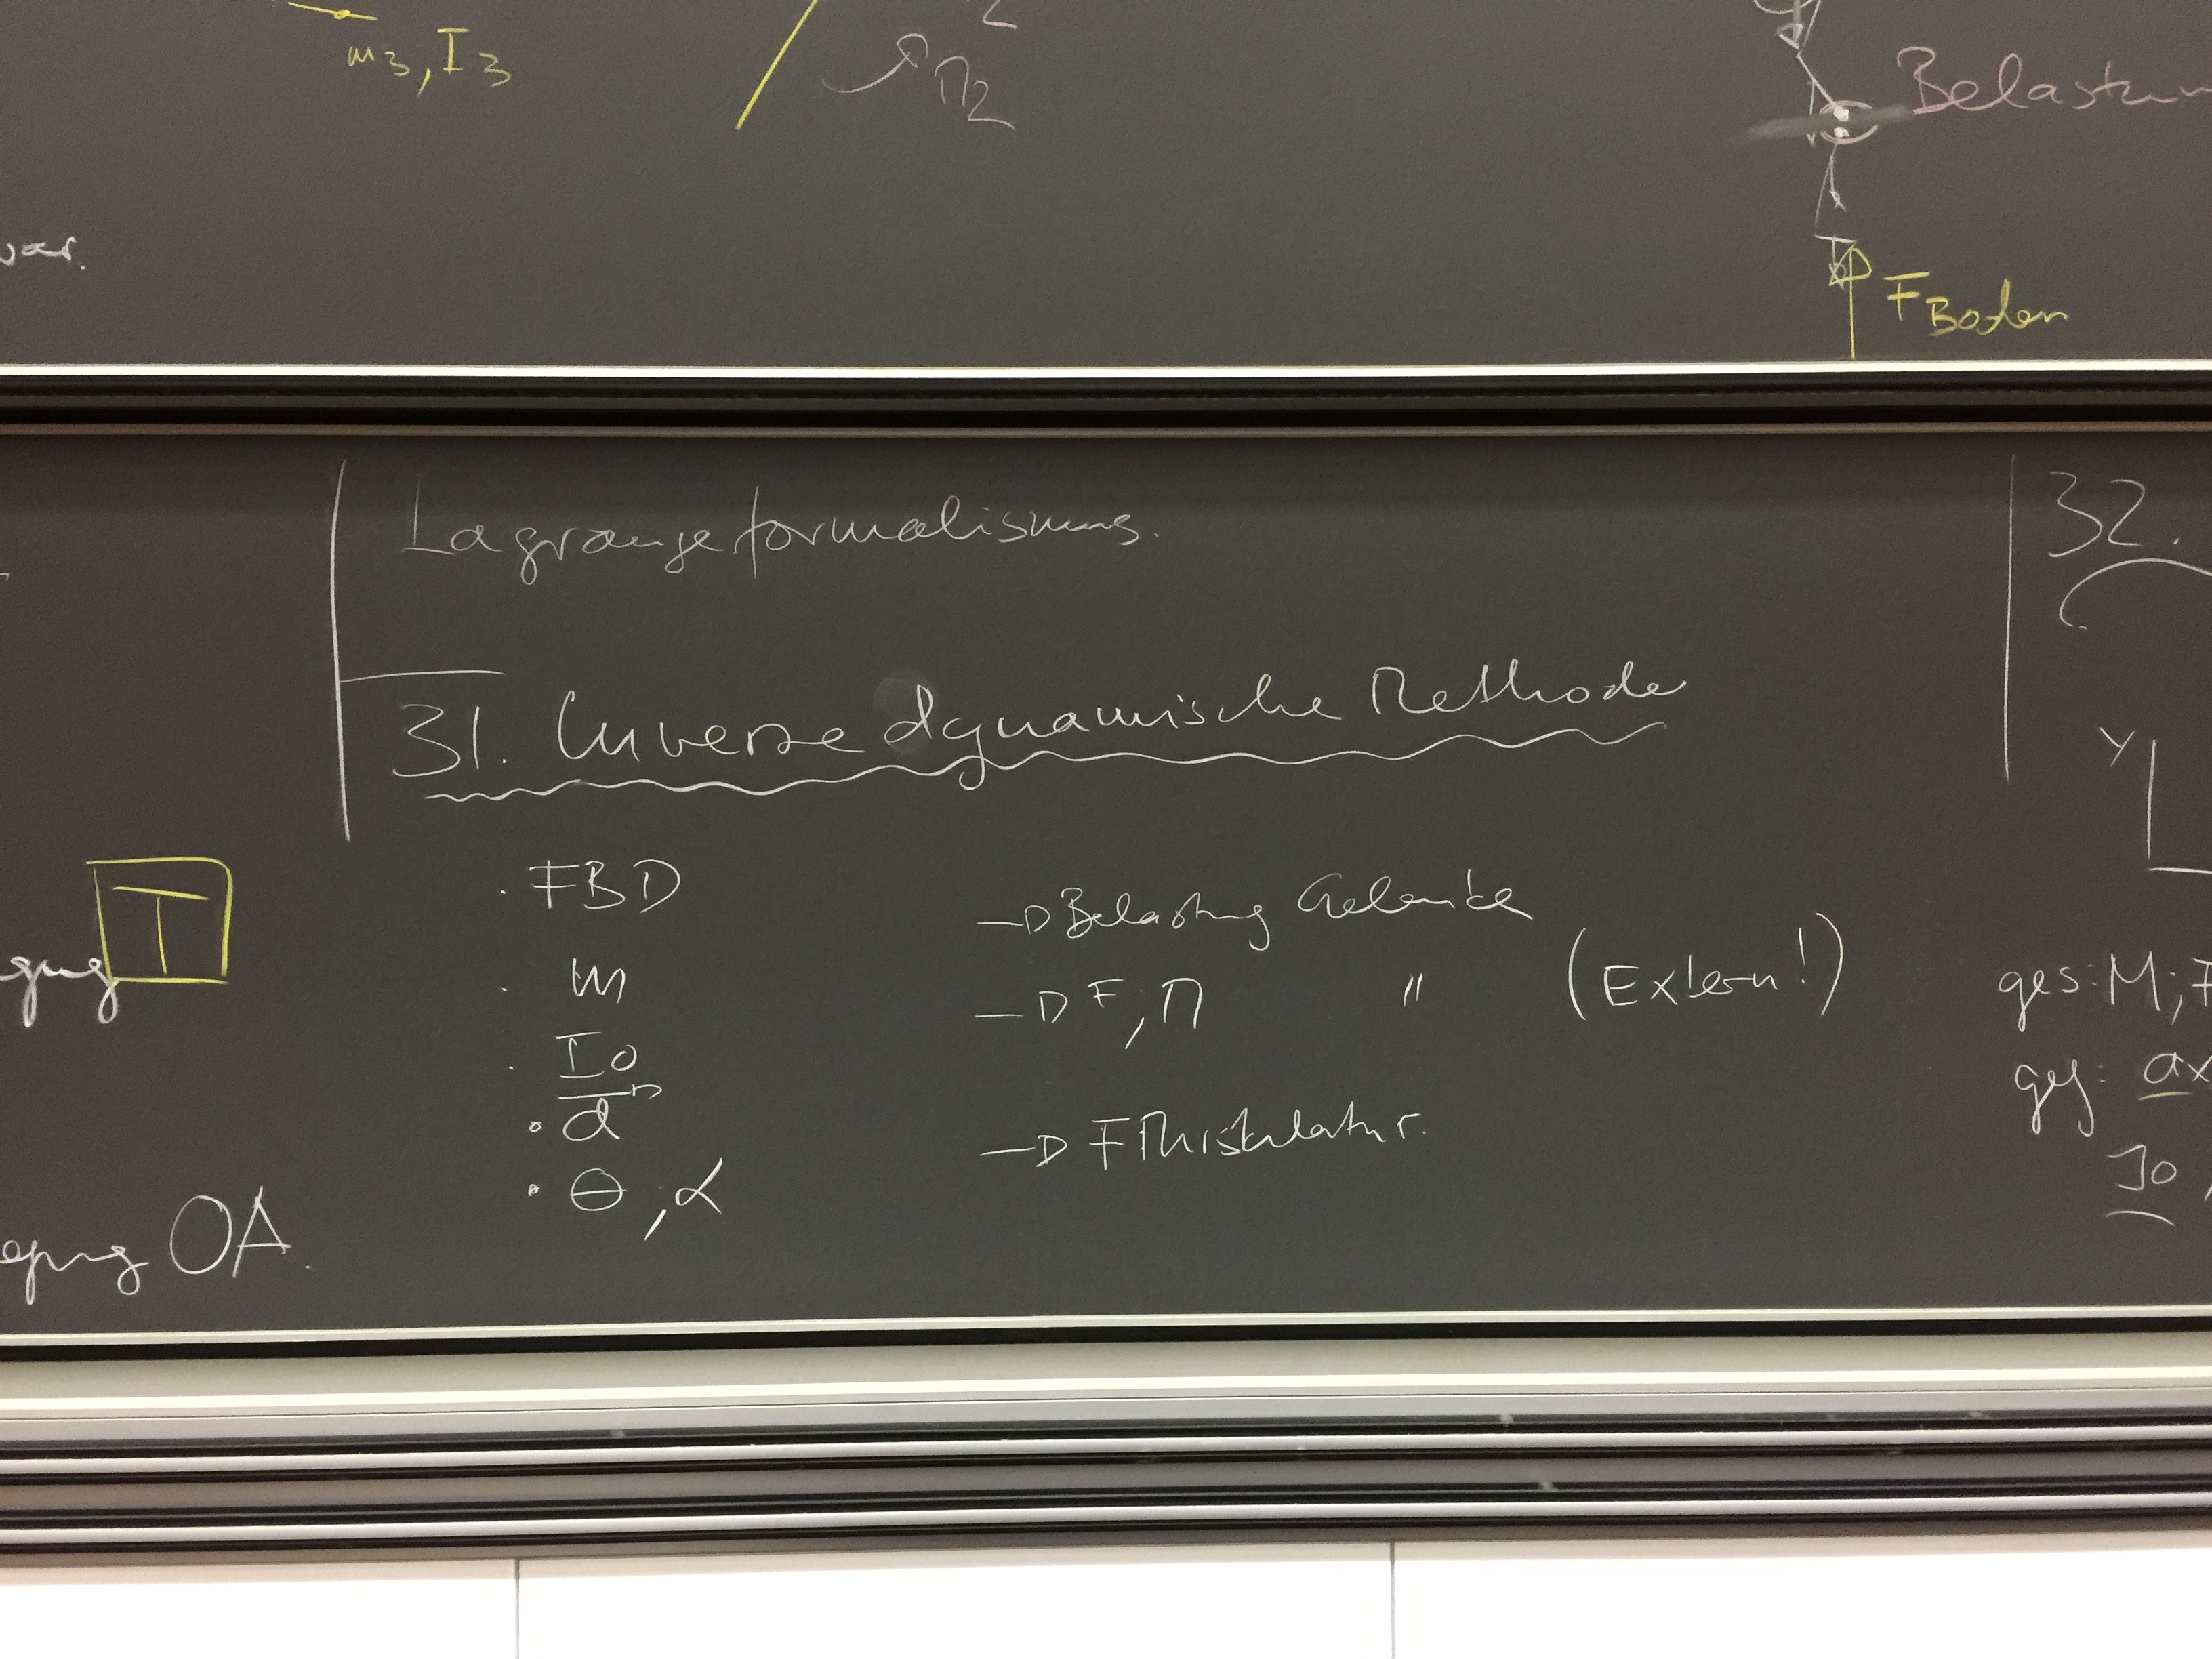 m3, I3
M2
Belastun
var.
FBoden
Lagrangeformalismus.
31. Inverse dynamische Methode
· FBD
· m
· I0
· d
· θ, α
→ Belastung Gelenke
→ F, M " (Extern!)
→ F Muskulatur.
gung T
OA.
32.
Y
ges: M; F
geg: ax
I0,